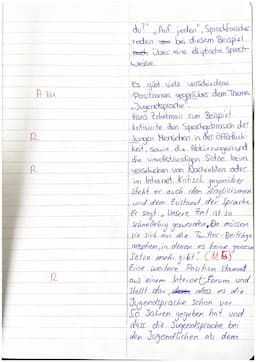 du?" „Auf jeden", Sprachforscher
reden bei diesem Beispiel
über eine elliptische Sprech-
weise.
Es gibt viele verschiedene
A zu
Positionen gegenüber dem Thema
„Jugendsprache".
Hans Zehetmair zum Beispiel
kritisierte den Sprachgebrauch der
R
jungen Menschen in der Öffentlich-
keit, sowie die Abkürzungen und
die unvollständigen Sätze beim
R
verschicken von Nachrichten oder
im Internet. Kritisch gegenüber
steht er auch den Anglizismen
und dem Zustand der Sprache.
Er sagt, „Unsere Zeit ist so
schnelllebig geworden. Da müssen
Sie sich nur die Twitter-Beiträge
ansehen, in denen es keine ganzen
Sätze mehr gibt." (M5)
Eine weitere Position stammt
R
aus einem Internet-Forum und
stellt dar, dass es die
Jugendsprache schon vor
50 Jahren gegeben hat und
dass die Jugendsprache bei
den Jugendlichen ab dem